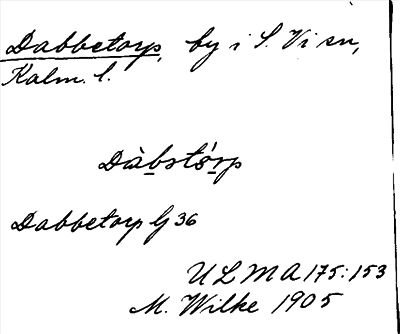 Dabbetorp, by i S. Vi sn,
Kalm. l.
Dàbstórp
Dabbetorp Gj 36
ULMA 175:153
M. Wilke 1905